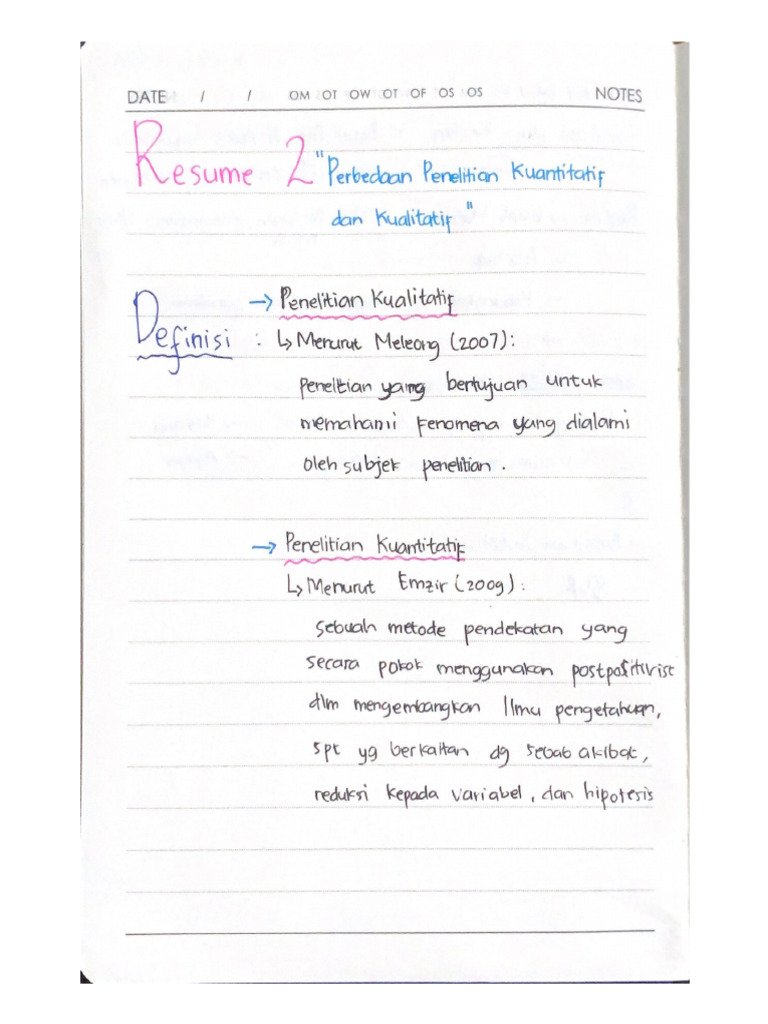 DATE / / OM OT OW OT OF OS OS NOTES
Resume 2 "Perbedaan Penelitian Kuantitatif
dan Kualitatif"
→ Penelitian Kualitatif
Definisi : ↳ Menurut Meleong (2007) :
penelitian yang bertujuan untuk
memahami fenomena yang dialami
oleh subjek penelitian.
→ Penelitian Kuantitatif
↳ Menurut Emzir (2009) :
sebuah metode pendekatan yang
secara pokok menggunakan postpositivist
dlm mengembangkan Ilmu pengetahuan,
spt yg berkaitan dg sebab akibat,
reduksi kepada variabel, dan hipotesis